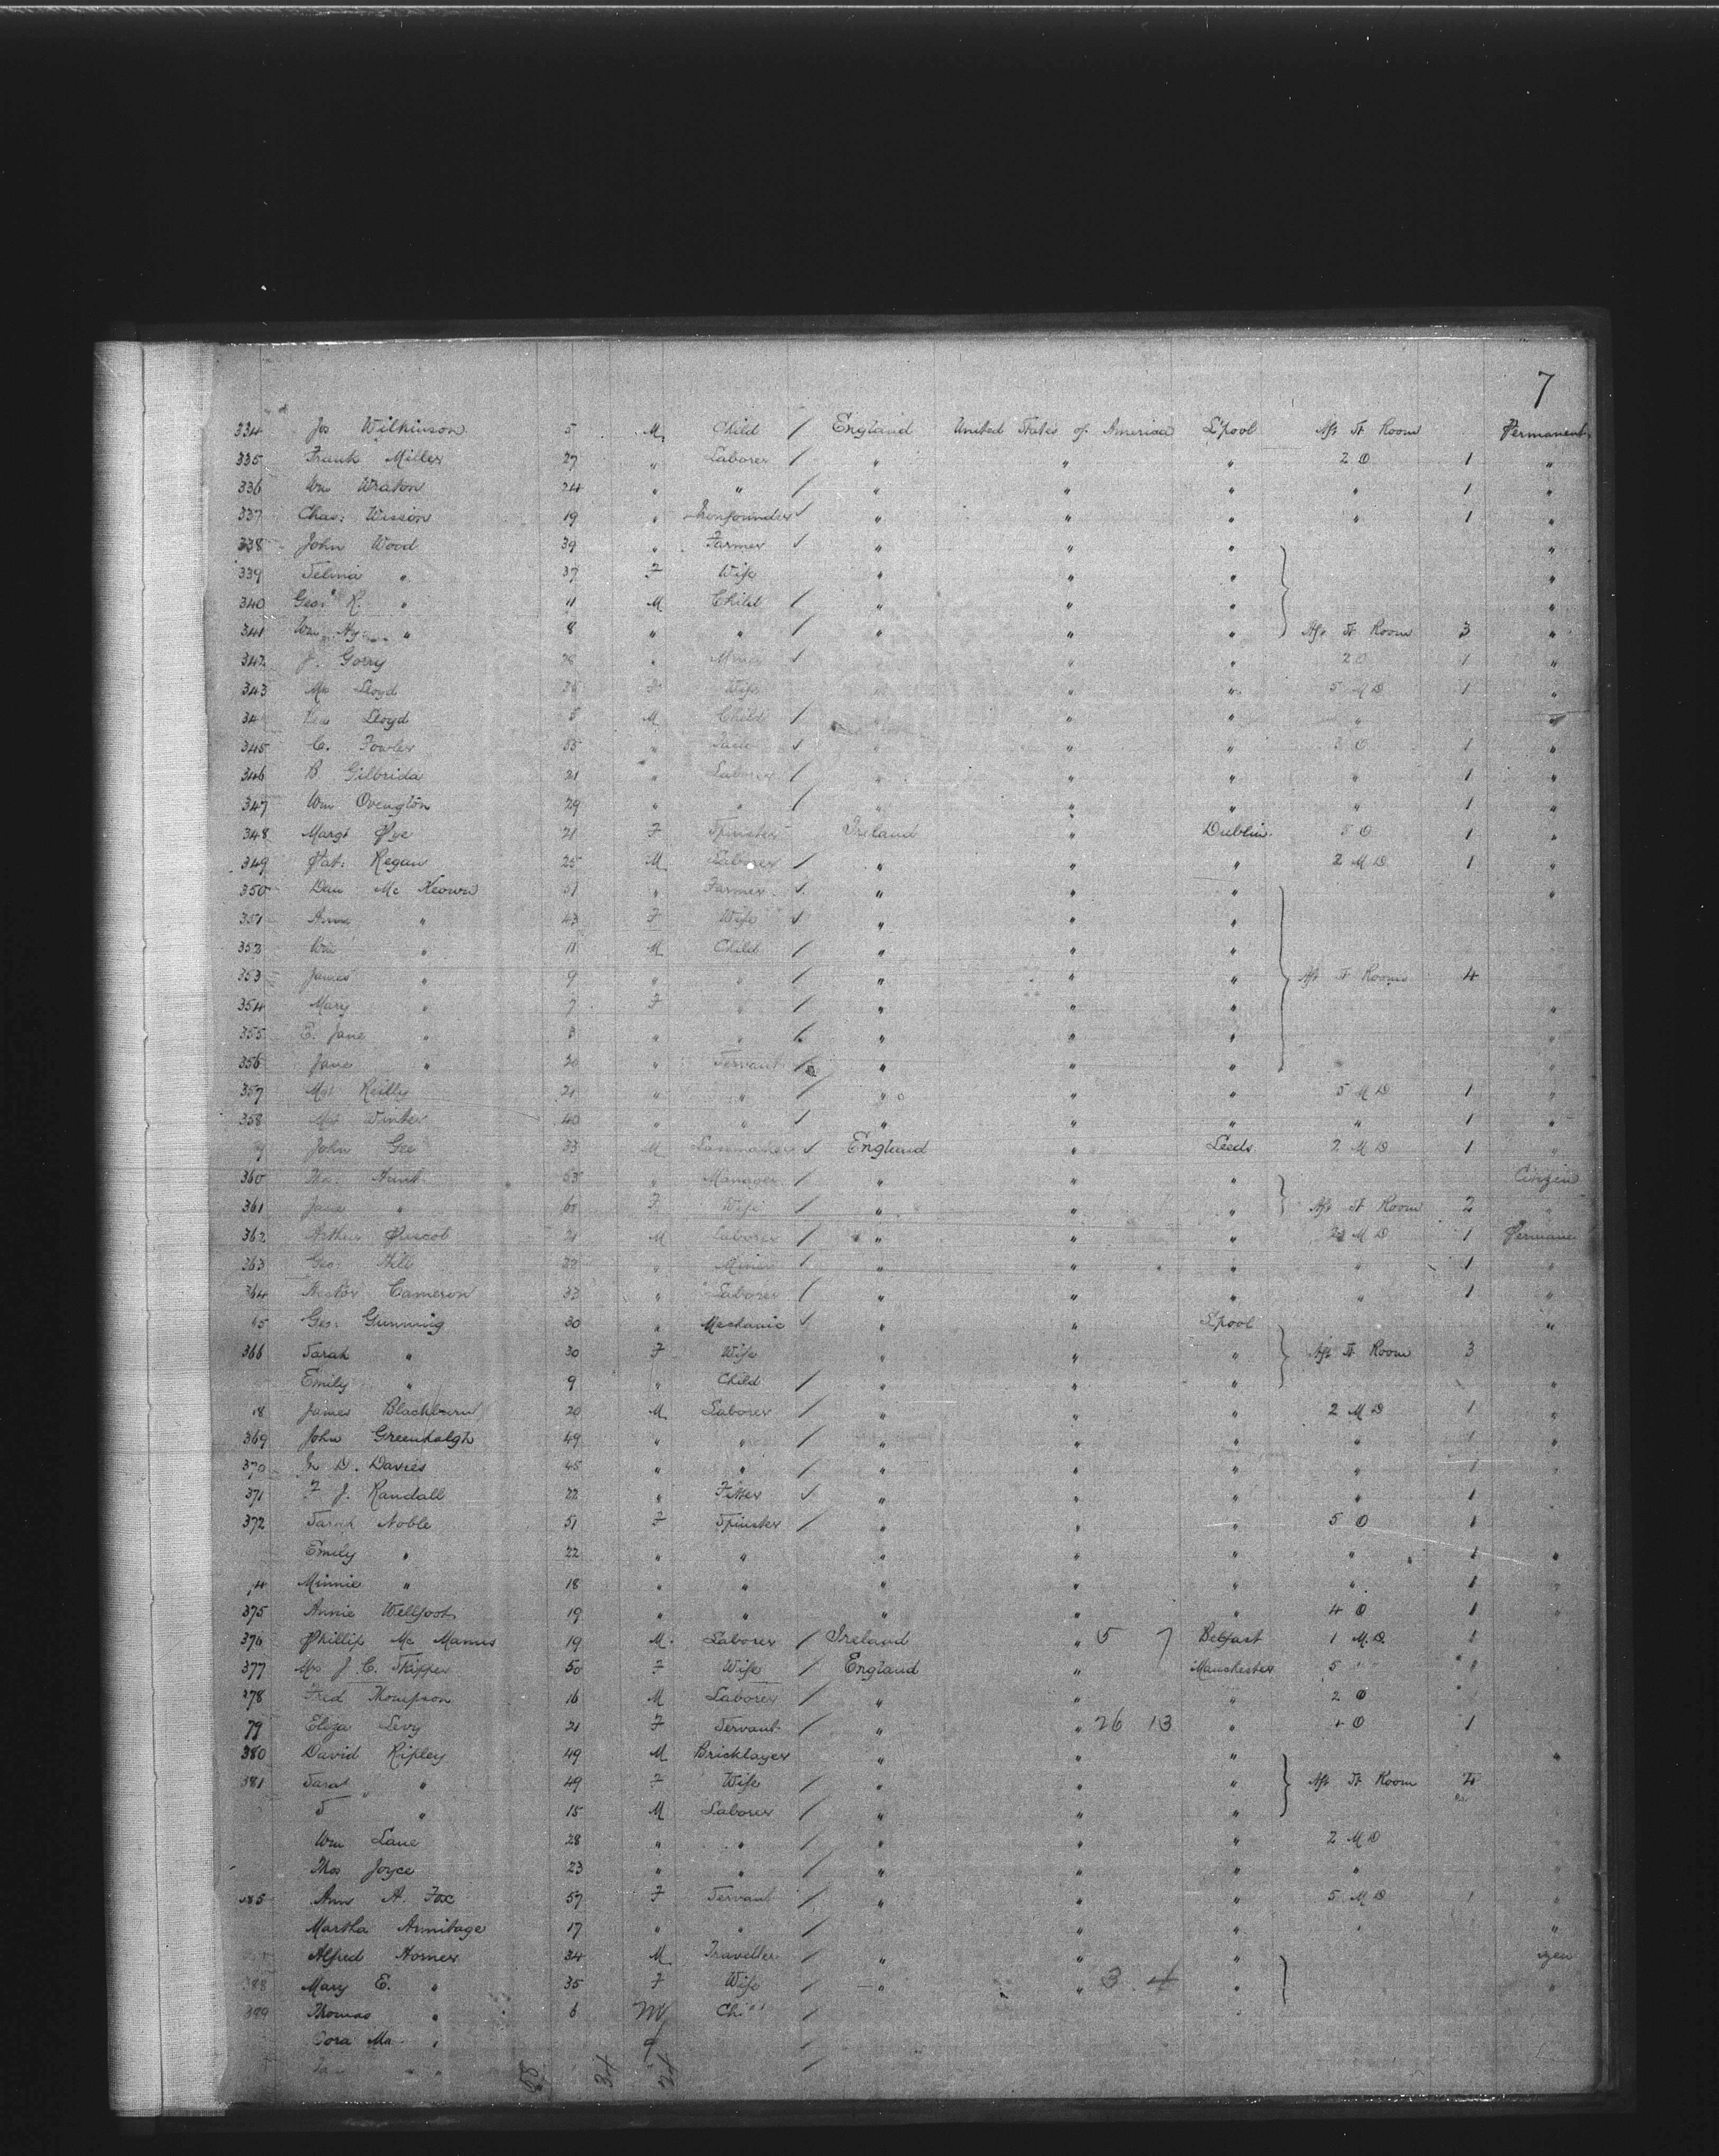 7
334 Jos Wilkinson 5 M Child / England United States of America L'pool Aft St Room Permanent
335 Frank Miller 27 " Laborer / " " " 2 O 1 "
336 Wm Wraton 24 " " / " " " " 1 "
337 Chas: Wisson 19 " Ironfounder ✓ " " " " 1 "
338 John Wood 39 " Farmer ✓ " " " "
339 Selina " 37 F Wife " " " "
340 Geo: R. " 11 M Child / " " " "
341 Wm Hy " 8 " " / " " " Aft St Room 3 "
342 J. Gorry 28 " ✓ " " 2 O 1 "
343 Lloyd F Wife " " 5 M D 1 "
34 Lloyd 5 M Child / " " " "
345 C. Fowler 35 " ✓ " " " O 1 "
346 B Gilbrida 21 " Laborer / " " " " 1 "
347 Wm Ovington 29 " " / " " " " 1 "
348 Margt Pye 21 F Spinster Ireland " Dublin 5 O 1 "
349 Pat: Regan 25 M Laborer / " " " 2 M D 1 "
350 Dan Mc Keown 51 " Farmer ✓ " " " "
351 Ann " 43 F Wife ✓ " " "
352 Wm " 11 M Child / " " "
353 James " 9 " " / " " " Aft St Rooms 4
354 Mary " 7 F " / " " " "
355 E. Jane " " " / " " " "
356 Jane " 20 " Servant / " " " "
357 Reilly 21 " " / " " " 5 M D 1 "
358 Winter 40 " " / " " " " 1 "
9 John Gee 33 M ✓ England " Leeds 2 M D 1 "
360 53 " Manager / " " " Citizen
361 Jane " F Wife / " " " Aft St Room 2 "
362 Arthur 21 M Laborer / " " " M D 1 Permane
363 Geo: Hill " Miner / " " " " 1 "
364 Hector Cameron 33 " Laborer / " " " " 1 "
65 Geo: Gunning 30 " Mechanic ✓ " " L'pool "
366 Sarah " 30 F Wife " " " Aft St Room 3
Emily " 9 " Child / " " " "
James Blackburn 20 M Laborer / " " " 2 M D 1 "
369 John Greenhalgh 49 " " / " " " " 1 "
370 D. Davies 45 " " / " " " " 1
371 F J. Randall 22 " Fitter ✓ " " " " 1
372 Sarah Noble 51 F Spinster / " " " 5 O 1
Emily " 22 " " " " " " 1 "
Minnie " 18 " " " " " " 1 "
375 Annie Wellfoot 19 " " " " " 4 O 1 "
376 Phillip Mc Manus 19 M Laborer / Ireland " 5 7 Belfast 1 M. D. 1
377 Mrs J. C. Skipper 50 F Wife / England " Manchester 5
378 Fred Thompson 16 M Laborer / " " " 2 O
79 Eliza Levy 21 F Servant / " " 26 13 " O 1
380 David Ripley 49 M Bricklayer " " " "
381 Sarah " 49 F Wife / " " " Aft St Room
S " 15 M Laborer / " " "
Wm Lane 28 " " / " " " 2 M D
Thos Joyce 23 " " / " " " "
385 Ann A. Fox 57 F Servant / " " " 5 M D 1 "
Martha Armitage 17 " " / " " " "
Alfred Homer 34 M Traveller / " " " zen
388 Mary E. " 35 F Wife / " " 3 4 "
Thomas " 6 M Chi /
Cora Ma " /
34 24